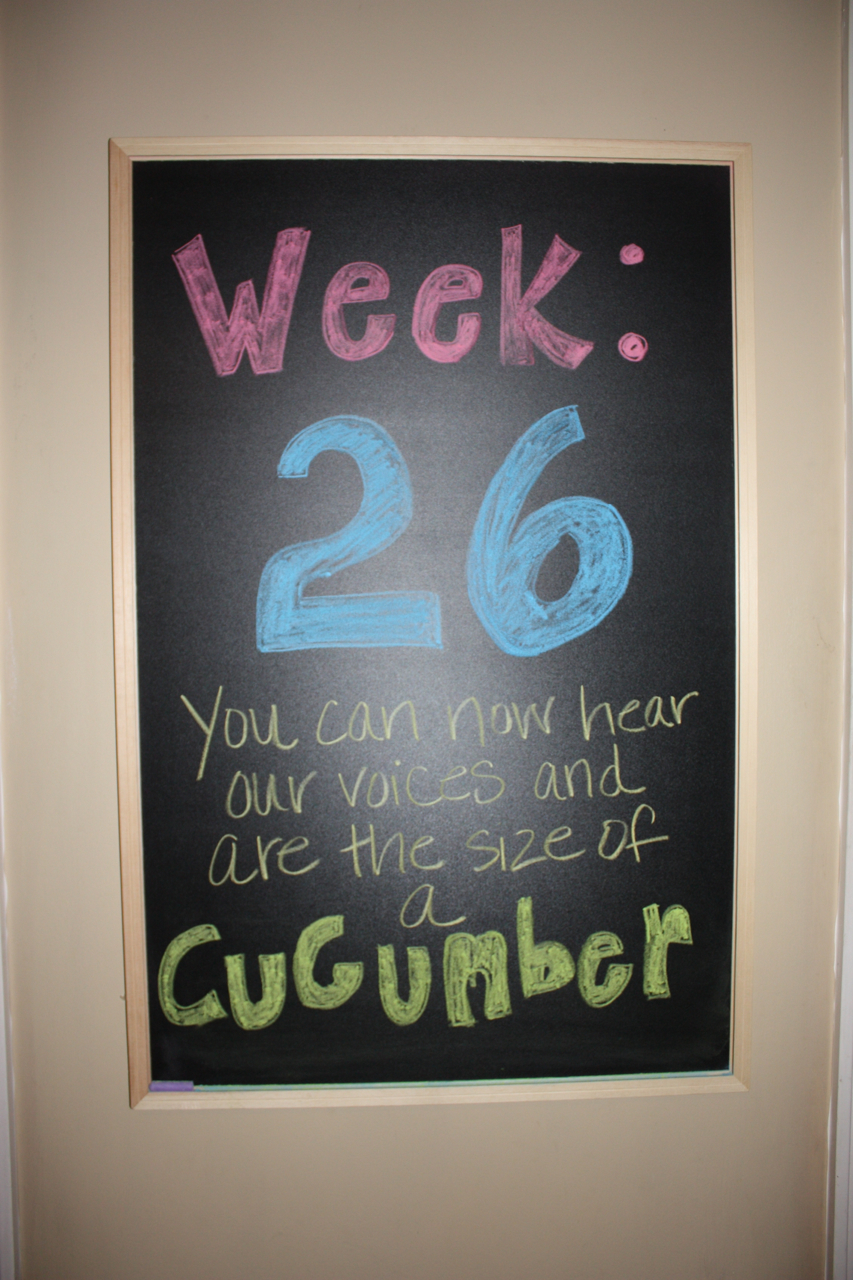 Week:
26
You can now hear
our voices and
are the size of
a
Cucumber